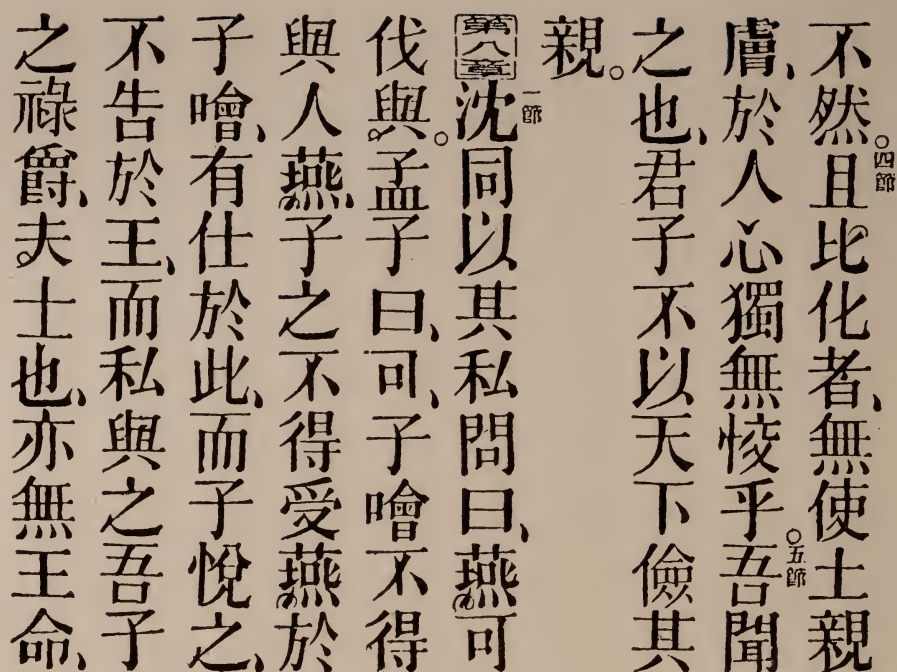 不然。且比化者、無使土親
四節
膚、於人心獨無恔乎。吾聞
五節
之也、君子不以天下儉其
親。
第八章
沈同以其私問曰、燕可
一節
伐與。孟子曰、可、子噲不得
與人燕、子之不得受燕於
子噲、有仕於此、而子悅之、
不告於王、而私與之吾子
之祿爵、夫士也、亦無王命、